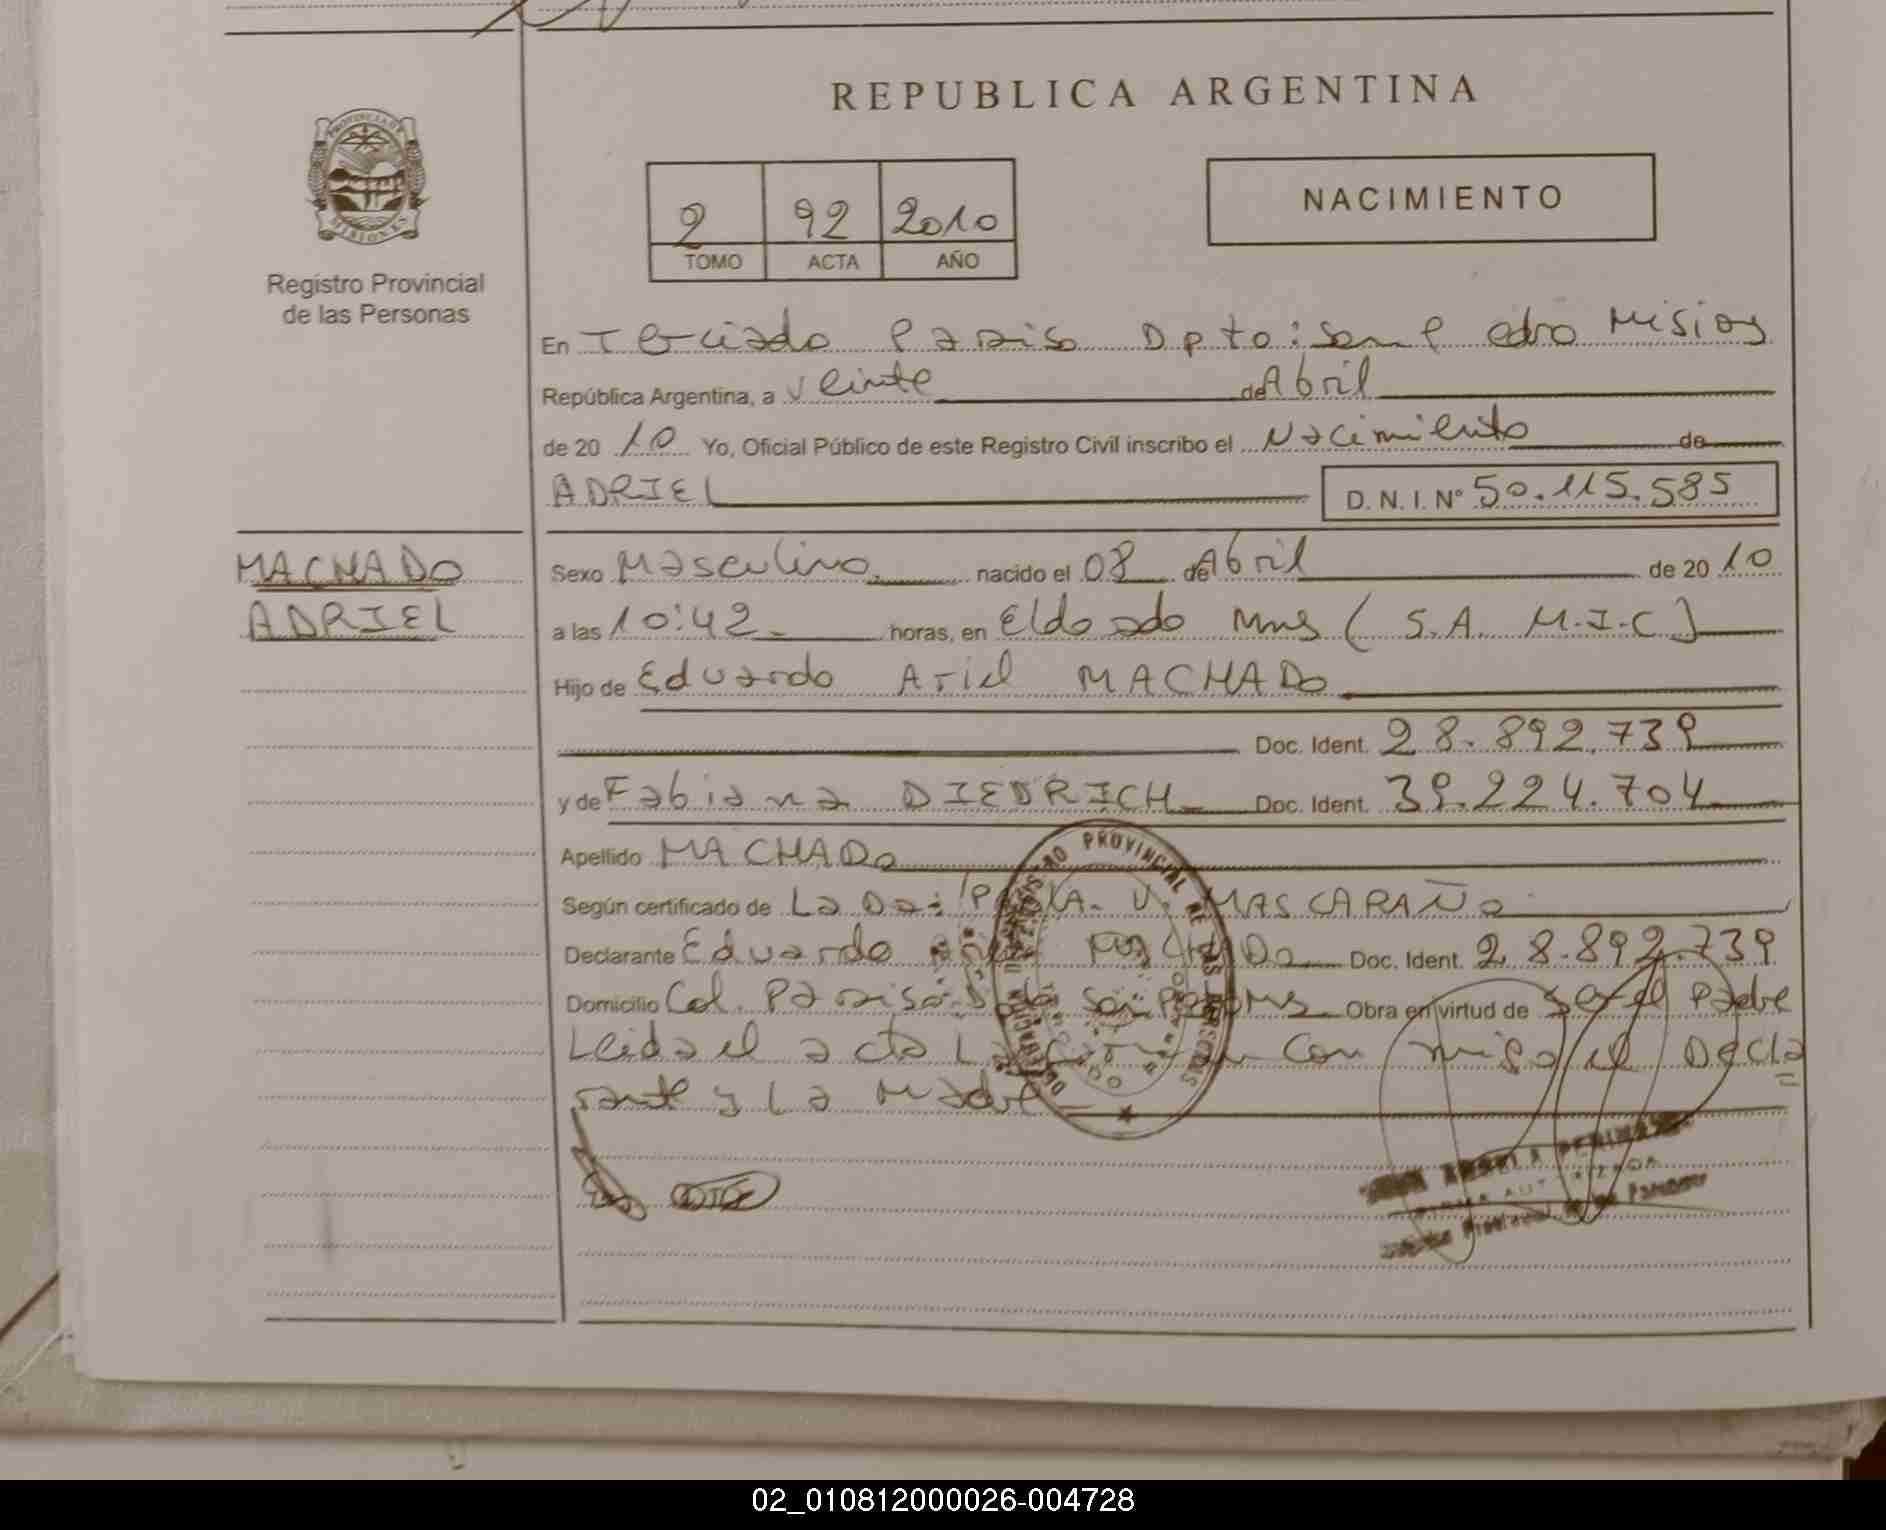 REPUBLICA ARGENTINA
PROVINCIA DE
MISIONES
Registro Provincial
de las Personas
2 92 2010
TOMO ACTA AÑO
NACIMIENTO
En Terciado Paraiso Dpto: San Pedro Misiones
República Argentina, a Veinte de Abril
de 20 10 Yo, Oficial Público de este Registro Civil inscribo el Nacimiento de
ADRIEL D. N. I. Nº 50.115.585
MACHADO
ADRIEL
Sexo Masculino nacido el 08 de Abril de 20 10
a las 10:42 horas, en Eldorado Mnes ( S.A. M.I.C)
Hijo de Eduardo Ariel MACHADO
Doc. Ident. 28.892.739
y de Fabiana DIEDRICH Doc. Ident. 39.224.704
Apellido MACHADO
Según certificado de La Da: V. MASCARAÑO
Declarante Eduardo Ariel MACHADO Doc. Ident. 28.892.739
Domicilio Col. Paraiso Obra en virtud de Ser el Padre
Leida el acta La con migo el Decla
rante y La Madre
PROVINCIAL DE LAS PERSONAS
02_010812000026-004728